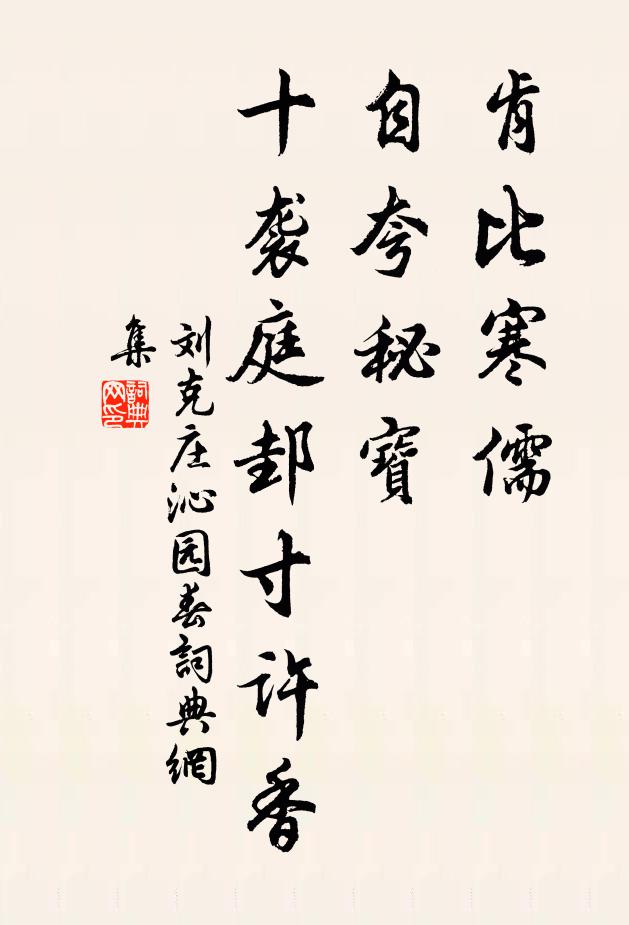 肯比寒儒
自夸秘寶
十袭庭邽寸许香
刘克庄沁园春詞典網
集
詞典网印